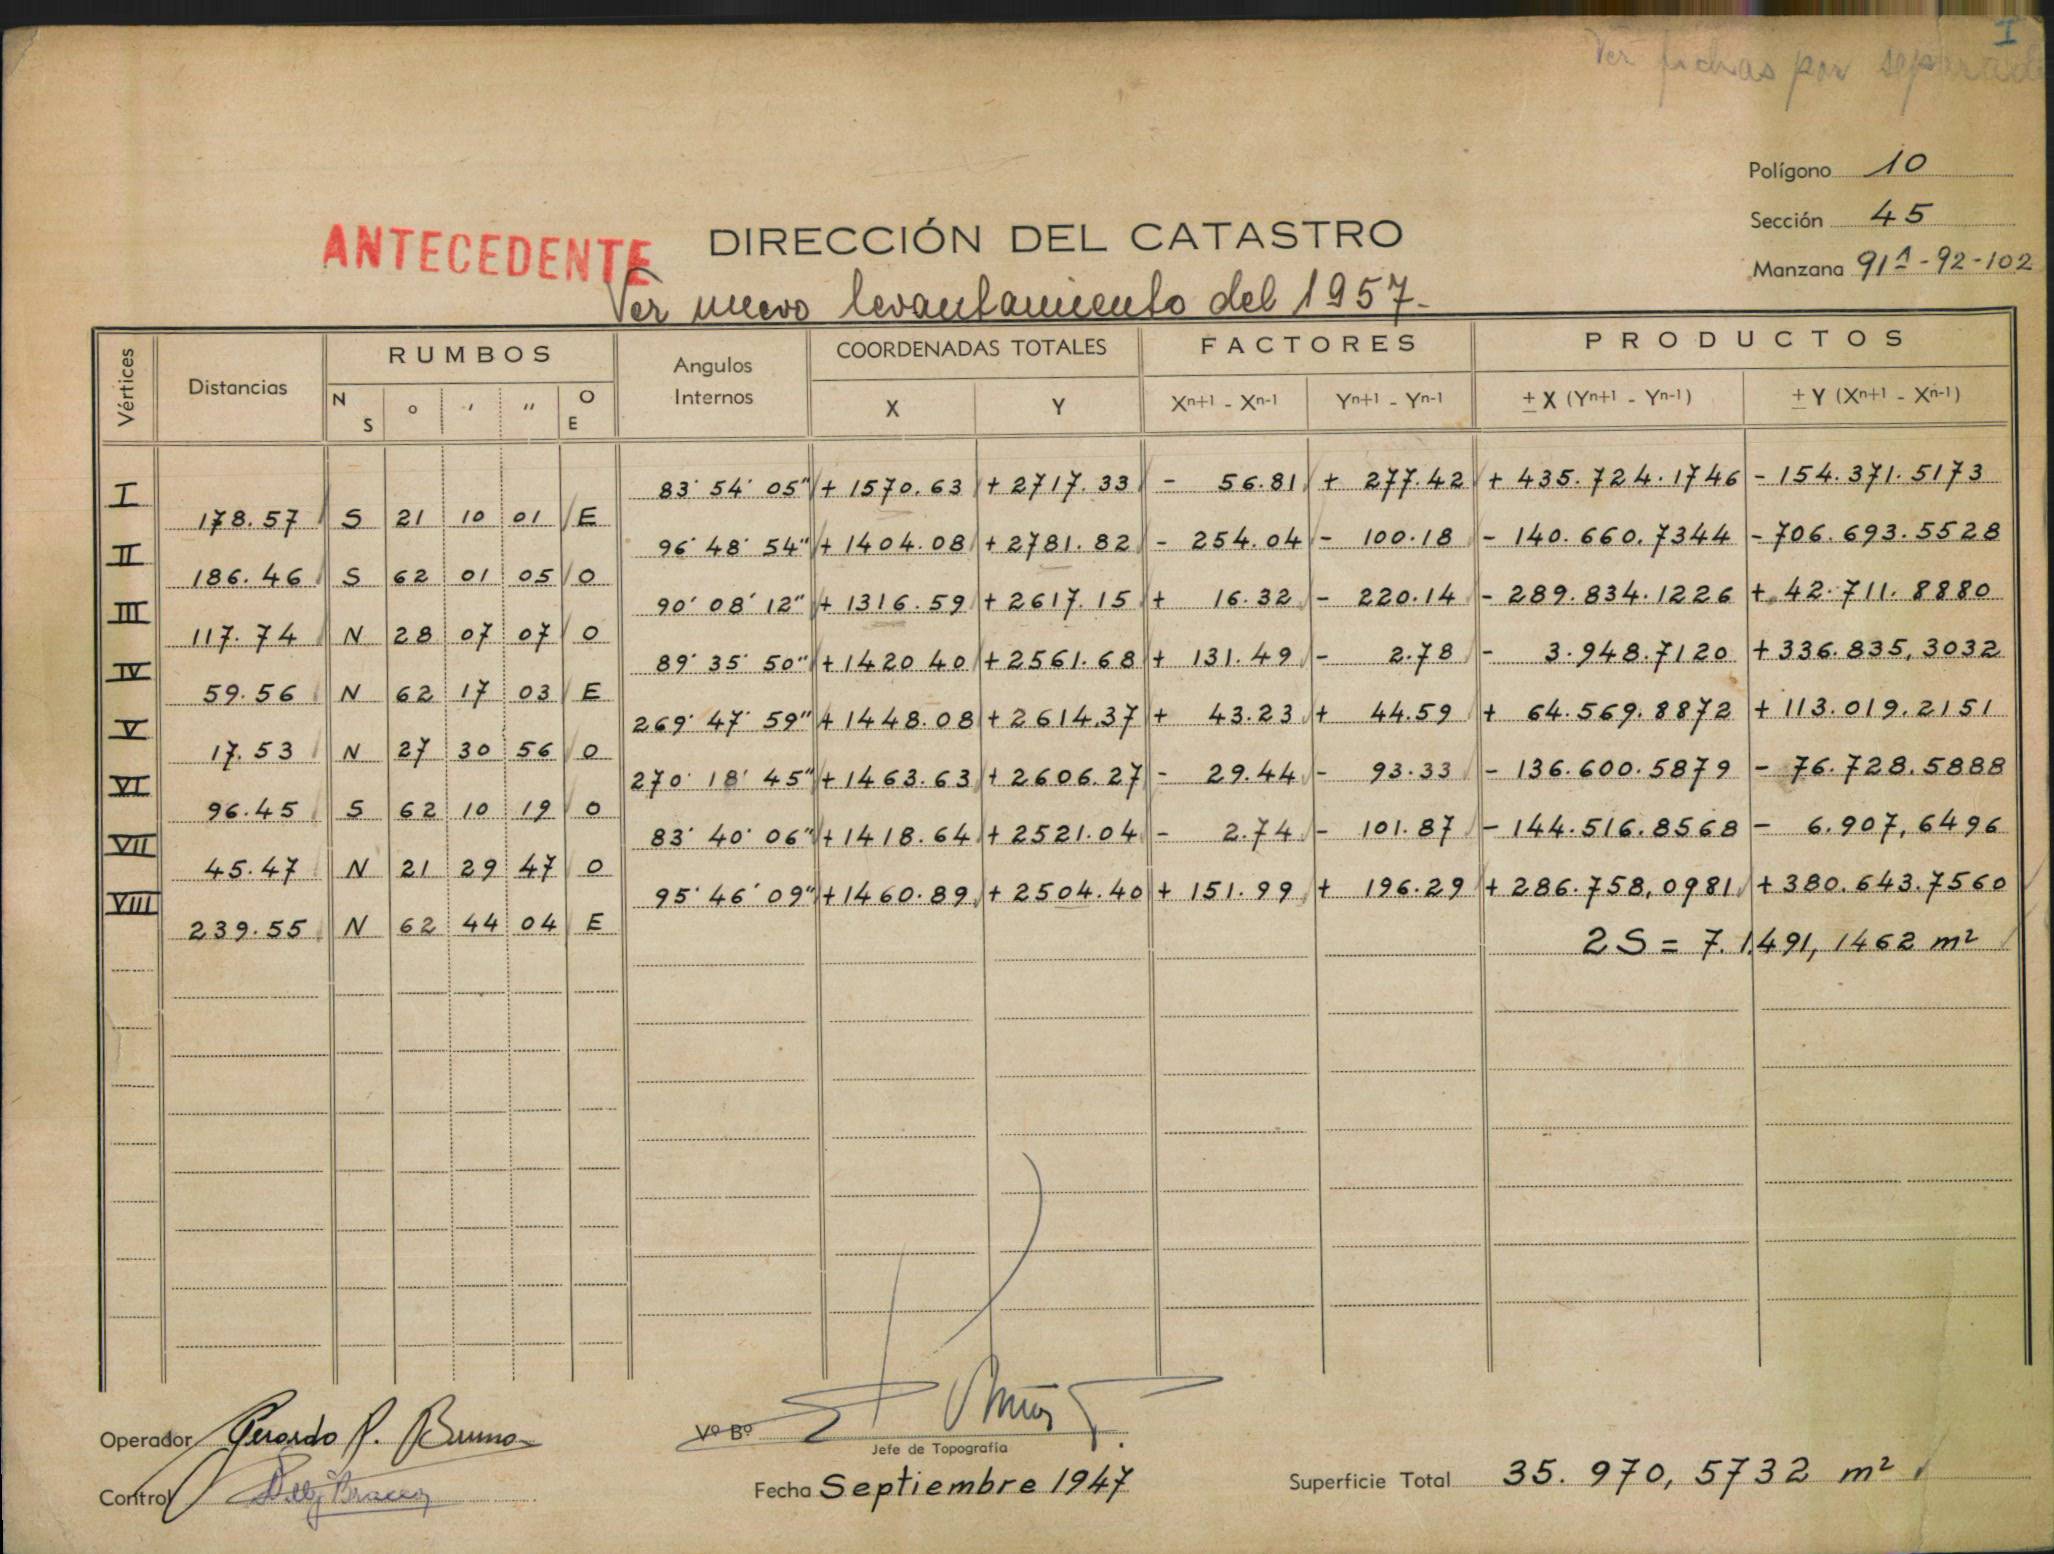 I
Ver fichas por separado
Polígono 10
Sección 45
Manzana 91A-92-102
ANTECEDENTE
DIRECCIÓN DEL CATASTRO
Ver nuevo levantamiento del 1957.-
Vértices Distancias RUMBOS Angulos Internos COORDENADAS TOTALES FACTORES PRODUCTOS
N S o ' '' O E X Y Xn+1 - Xn-1 Yn+1 - Yn-1 ± X (Yn+1 - Yn-1) ± Y (Xn+1 - Xn-1)
I 83° 54' 05" + 1570.63 + 2717.33 - 56.81 + 277.42 + 435.724.1746 - 154.371.5173
178.57 S 21 10 01 E
II 96° 48' 54" + 1404.08 + 2781.82 - 254.04 - 100.18 - 140.660.7344 - 706.693.5528
186.46 S 62 01 05 O
III 90° 08' 12" + 1316.59 + 2617.15 + 16.32 - 220.14 - 289.834.1226 + 42.711.8880
117.74 N 28 07 07 O
IV 89° 35' 50" + 1420.40 + 2561.68 + 131.49 - 2.78 - 3.948.7120 + 336.835,3032
59.56 N 62 17 03 E
V 269° 47' 59" + 1448.08 + 2614.37 + 43.23 + 44.59 + 64.569.8872 + 113.019.2151
17.53 N 27 30 56 O
VI 270° 18' 45" + 1463.63 + 2606.27 - 29.44 - 93.33 - 136.600.5879 - 76.728.5888
96.45 S 62 10 19 O
VII 83° 40' 06" + 1418.64 + 2521.04 - 2.74 - 101.87 - 144.516.8568 - 6.907,6496
45.47 N 21 29 47 O
VIII 95° 46' 09" + 1460.89 + 2504.40 + 151.99 + 196.29 + 286.758,0981 + 380.643.7560
239.55 N 62 44 04 E
2S = 7.1.491,1462 m²
Operador Gerardo P. Bruno
Vº Bº
Jefe de Topografía
Control
Fecha Septiembre 1947
Superficie Total 35.970,5732 m²